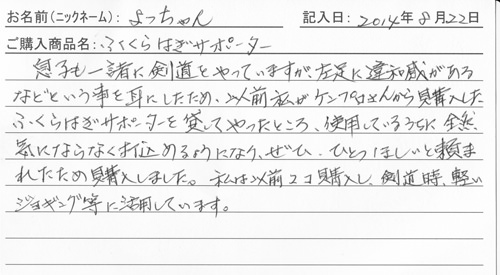 お名前(ニックネーム): よっちゃん 記入日: 2014年 8月22日
ご購入商品名: ふくらはぎサポーター
息子も一諸に剣道をやっていますが、左足に違和感がある
などという事を耳にしたため、以前私がケンプロさんから購入した
ふくらはぎサポーターを貸してやったところ、使用しているうちに全然
気にならなく打込めるようになり、ぜひ、ひとつほしいと頼ま
れたため購入しました。私は以前2コ購入し、剣道時、軽い
ジョギング等に活用しています。